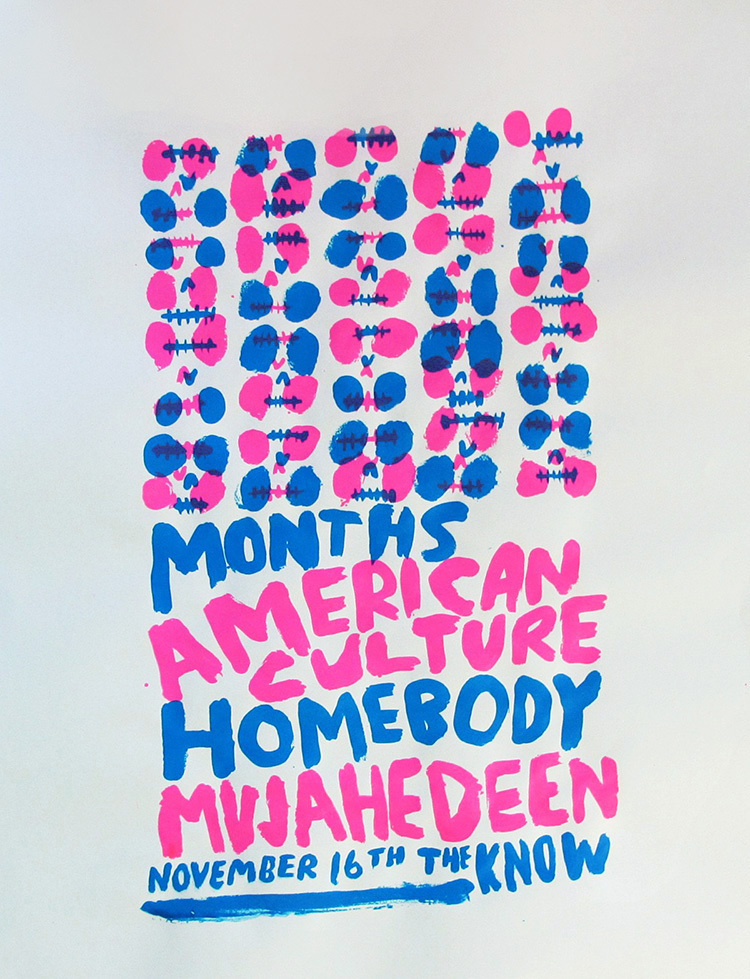 MONTHS
AMERICAN
CULTURE
HOMEBODY
MUJAHEDEEN
NOVEMBER 16TH THE KNOW